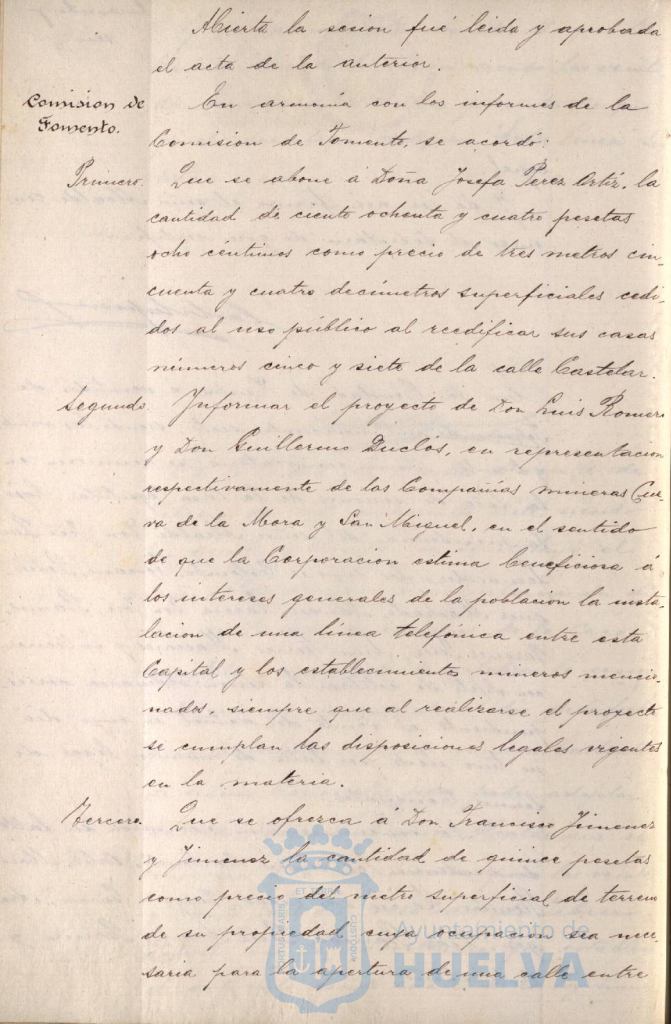 Abierta la sesion fué leida y aprobada
el acta de la anterior.
Comision de
Fomento.
En armonía con los informes de la
Comision de Fomento, se acordó:
Primero.
Que se abone á Doña Josefa Perez Ortiz, la
cantidad de ciento ochenta y cuatro pesetas
ocho céntimos como precio de tres metros cin-
cuenta y cuatro decímetros superficiales cedi-
dos al uso público al reedificar sus casas
números cinco y siete de la calle Castelar.
Segundo.
Informar el proyecto de Don Luis Romero
y Don Guillermo Duclós, en representacion
respectivamente de las Compañias mineras Cue-
va de la Mora y San Miguel, en el sentido
de que la Corporacion estima beneficiosa á
los intereses generales de la poblacion la insta-
lacion de una línea telefónica entre esta
Capital y los establecimientos mineros mencio-
nados, siempre que al realizarse el proyecto
se cumplan las disposiciones legales vigentes
en la materia.
Tercero.
Que se ofrezca á Don Francisco Jimenez
y Jimenez la cantidad de quince pesetas
como precio del metro superficial de terreno
de su propiedad cuya ocupacion sea nece-
saria para la apertura de una calle entre
Ayuntamiento de
HUELVA